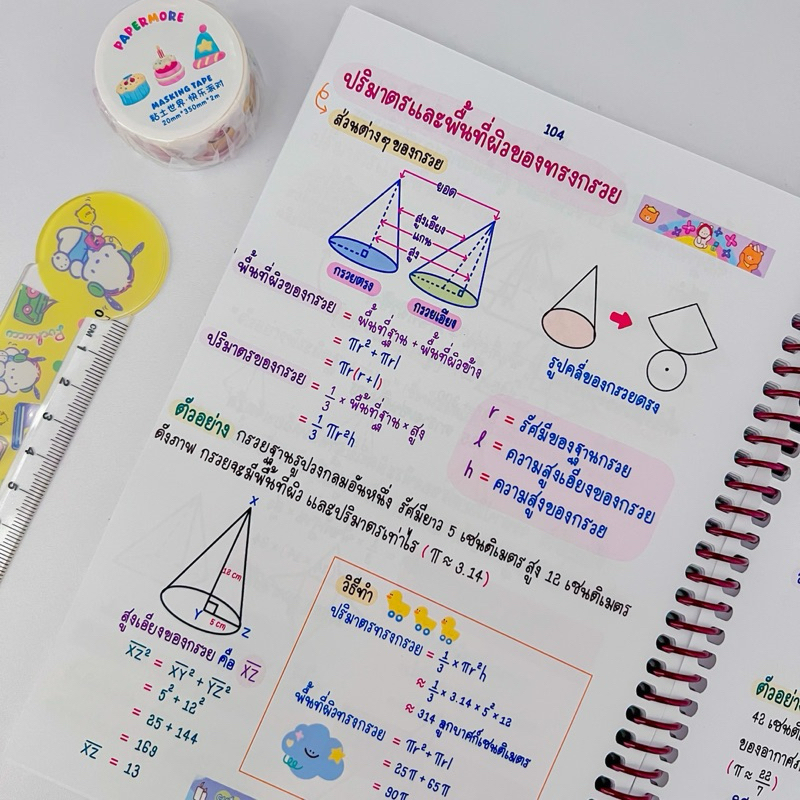 PAPERMORE
MASKING TAPE
粘土世界·快乐派对
20mm*350mm*2m
0 CM
1
2
3
4
5
104
ปริมาตรและพื้นที่ผิวของทรงกรวย
ส่วนต่างๆ ของกรวย
ยอด
สูงเอียง
แกน
สูง
กรวยตรง
กรวยเอียง
รูปคลี่ของกรวยตรง
พื้นที่ผิวของกรวย = พื้นที่ฐาน + พื้นที่ผิวข้าง
= πr² + πrl
= πr(r+l)
ปริมาตรของกรวย = 1/3 × พื้นที่ฐาน × สูง
= 1/3 πr²h
r = รัศมีของฐานกรวย
l = ความสูงเอียงของกรวย
h = ความสูงของกรวย
ตัวอย่าง กรวยฐานรูปวงกลมอันหนึ่ง รัศมียาว 5 เซนติเมตร สูง 12 เซนติเมตร
ดังภาพ กรวยจะมีพื้นที่ผิว และปริมาตรเท่าไร (π ≈ 3.14)
X
12 cm
Y
5 cm
Z
สูงเอียงของกรวย คือ XZ
XZ² = XY² + YZ²
= 5² + 12²
= 25 + 144
= 169
XZ = 13
วิธีทำ
ปริมาตรทรงกรวย = 1/3 × πr²h
≈ 1/3 × 3.14 × 5² × 12
≈ 314 ลูกบาศก์เซนติเมตร
พื้นที่ผิวทรงกรวย = πr² + πrl
= 25π + 65π
= 90π
ตัวอย่าง
42 เซนติ
ของอากาศ
(π ≈ 22/7)